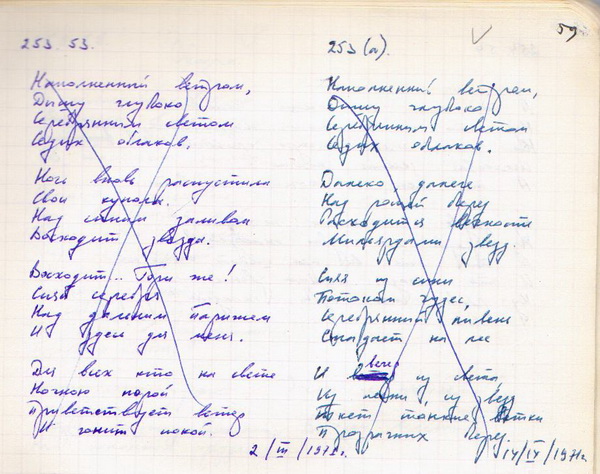 59
253. 53.
Наполненный ветром,
Дышу глубоко
Серебряным светом
Седых облаков.
Ночь вновь распустила
Свои купола.
Над синим заливом
Восходит звезда.
Восходит.. Гори же!
Сияй серебря
Над далёким Парижем
И здесь для меня.
Для всех кто на свете
Ночною порой
Приветствует ветер
И гонит покой.
2/III/1971г.
253(а).
Наполненный ветром,
Дышу глубоко
Серебряным светом
Седых облаков.
Далеко, далече
Над рощей берёз
Расходится вечность
Миллярдами звёзд.
Сияя из сини
Потоком чудес,
Серебрянный ливень
Спадает на лес
И вечер из света,
Из летни, из звёзд
Ткёт тонкие ветки
Прозрачных берёз.
14/IV/1971г.